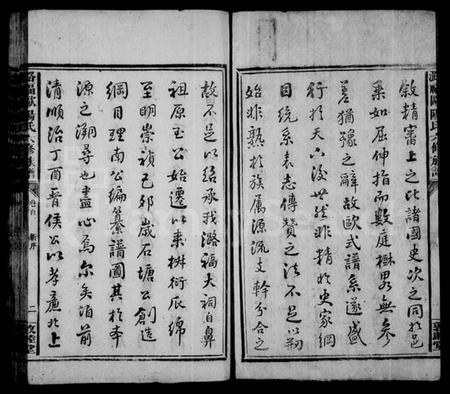 敘精審上之比諸國史次之同於邑
乘如屈伸指而數庭樹畧無參
差猶豫之辭故歐式譜系遂盛
行於天下後世然非精於史家綱
目統系表志傳贊之法不足以刱
始非熟於族屬源流支幹分合之
故不足以緜承我潞福大祠自鼻
祖原玉公始遷以來椒衍瓜綿
至明崇禎己卯歲石塘公創造
綱目理南公編纂譜圖其於本
源之溯尋也盡心焉尔矣洎前
清順治丁酉晉侯公以孝廉北上
歐陽氏六修族譜
卷首
新序
二
敦睦堂